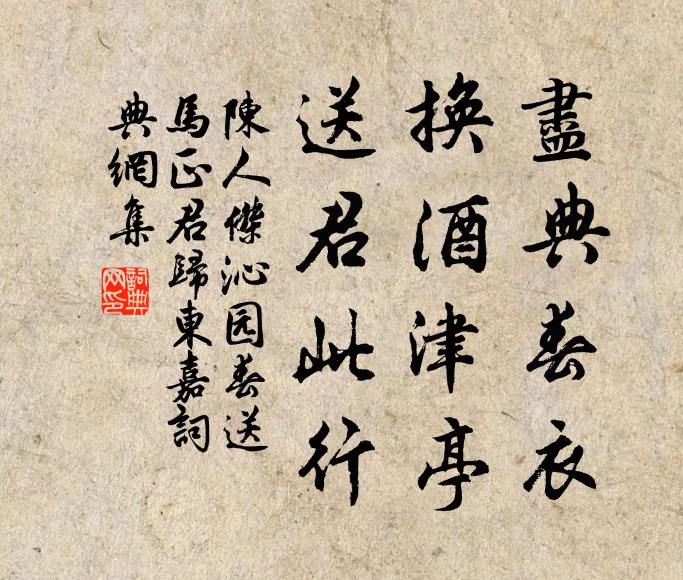 盡典春衣
換酒津亭
送君此行
陳人傑沁园春送
馬正君歸東嘉詞
典網集
詞典网印